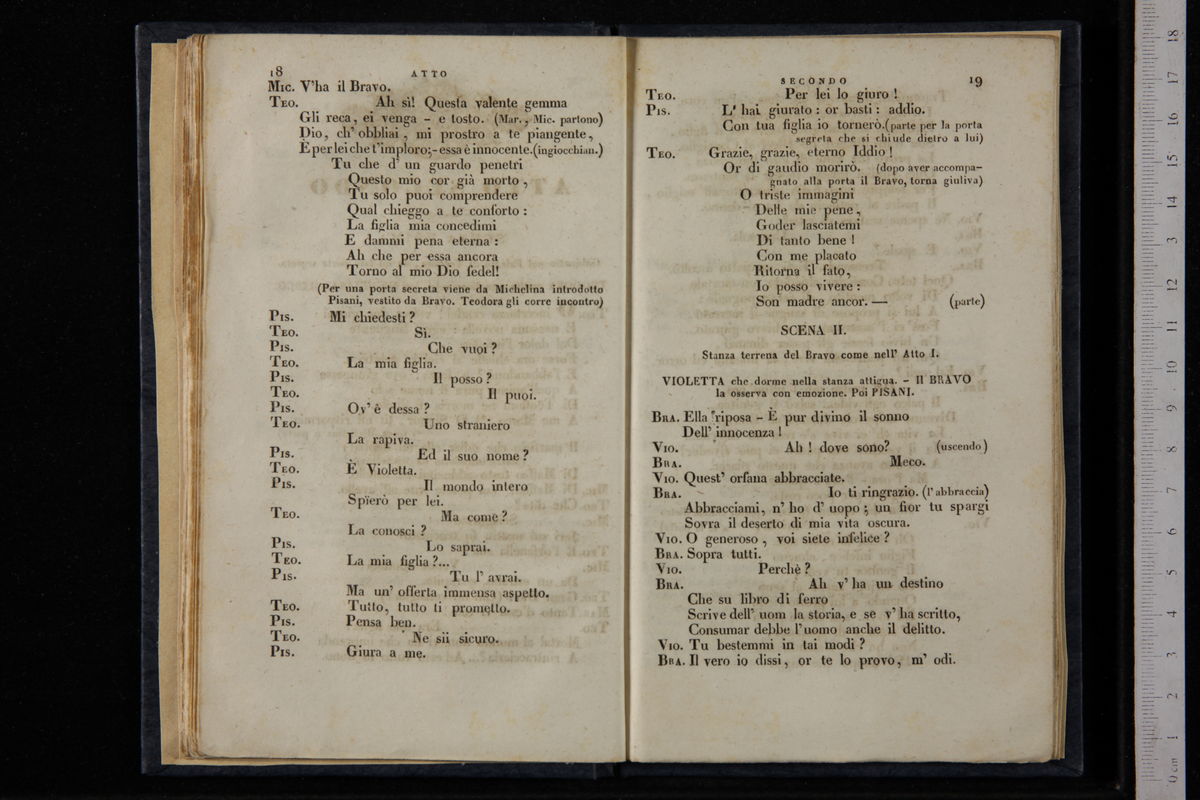 18 ATTO
Mic. V'ha il Bravo.
Teo. Ah sì! Questa valente gemma
Gli reca, ei venga - e tosto. (Mar., Mic. partono)
Dio, ch' obbliai, mi prostro a te piangente,
E per lei che t'imploro; - essa è innocente. (ingiocchian.)
Tu che d' un guardo penetri
Questo mio cor già morto,
Tu solo puoi comprendere
Qual chieggo a te conforto:
La figlia mia concedimi
E dammi pena eterna:
Ah che per essa ancora
Torno al mio Dio fedel!
(Per una porta secreta viene da Michelina introdotto
Pisani, vestito da Bravo. Teodora gli corre incontro)
Pis. Mi chiedesti?
Teo. Sì.
Pis. Che vuoi?
Teo. La mia figlia.
Pis. Il posso?
Teo. Il puoi.
Pis. Ov' è dessa?
Teo. Uno straniero
La rapiva.
Pis. Ed il suo nome?
Teo. È Violetta.
Pis. Il mondo intero
Spïerò per lei.
Teo. Ma come?
La conosci?
Pis. Lo saprai.
Teo. La mia figlia?...
Pis. Tu l' avrai.
Ma un' offerta immensa aspetto.
Teo. Tutto, tutto ti prometto.
Pis. Pensa ben.
Teo. Ne sii sicuro.
Pis. Giura a me.
SECONDO 19
Teo. Per lei lo giuro!
Pis. L' hai giurato: or basti: addio.
Con tua figlia io tornerò. (parte per la porta
segreta che si chiude dietro a lui)
Teo. Grazie, grazie, eterno Iddio!
Or di gaudio morirò. (dopo aver accompa-
gnato alla porta il Bravo, torna giuliva)
O triste immagini
Delle mie pene,
Goder lasciatemi
Di tanto bene!
Con me placato
Ritorna il fato,
Io posso vivere:
Son madre ancor. — (parte)
SCENA II.
Stanza terrena del Bravo come nell' Atto I.
VIOLETTA che dorme nella stanza attigua. - Il BRAVO
la osserva con emozione. Poi PISANI.
Bra. Ella riposa - È pur divino il sonno
Dell' innocenza!
Vio. Ah! dove sono? (uscendo)
Bra. Meco.
Vio. Quest' orfana abbracciate.
Bra. Io ti ringrazio. (l' abbraccia)
Abbracciami, n' ho d' uopo; un fior tu spargi
Sovra il deserto di mia vita oscura.
Vio. O generoso, voi siete infelice?
Bra. Sopra tutti.
Vio. Perchè?
Bra. Ah v' ha un destino
Che su libro di ferro
Scrive dell' uom la storia, e se v' ha scritto,
Consumar debbe l'uomo anche il delitto.
Vio. Tu bestemmi in tai modi?
Bra. Il vero io dissi, or te lo provo, m' odi.
0 cm 1 2 3 4 5 6 7 8 9 10 11 12 13 14 15 16 17 18